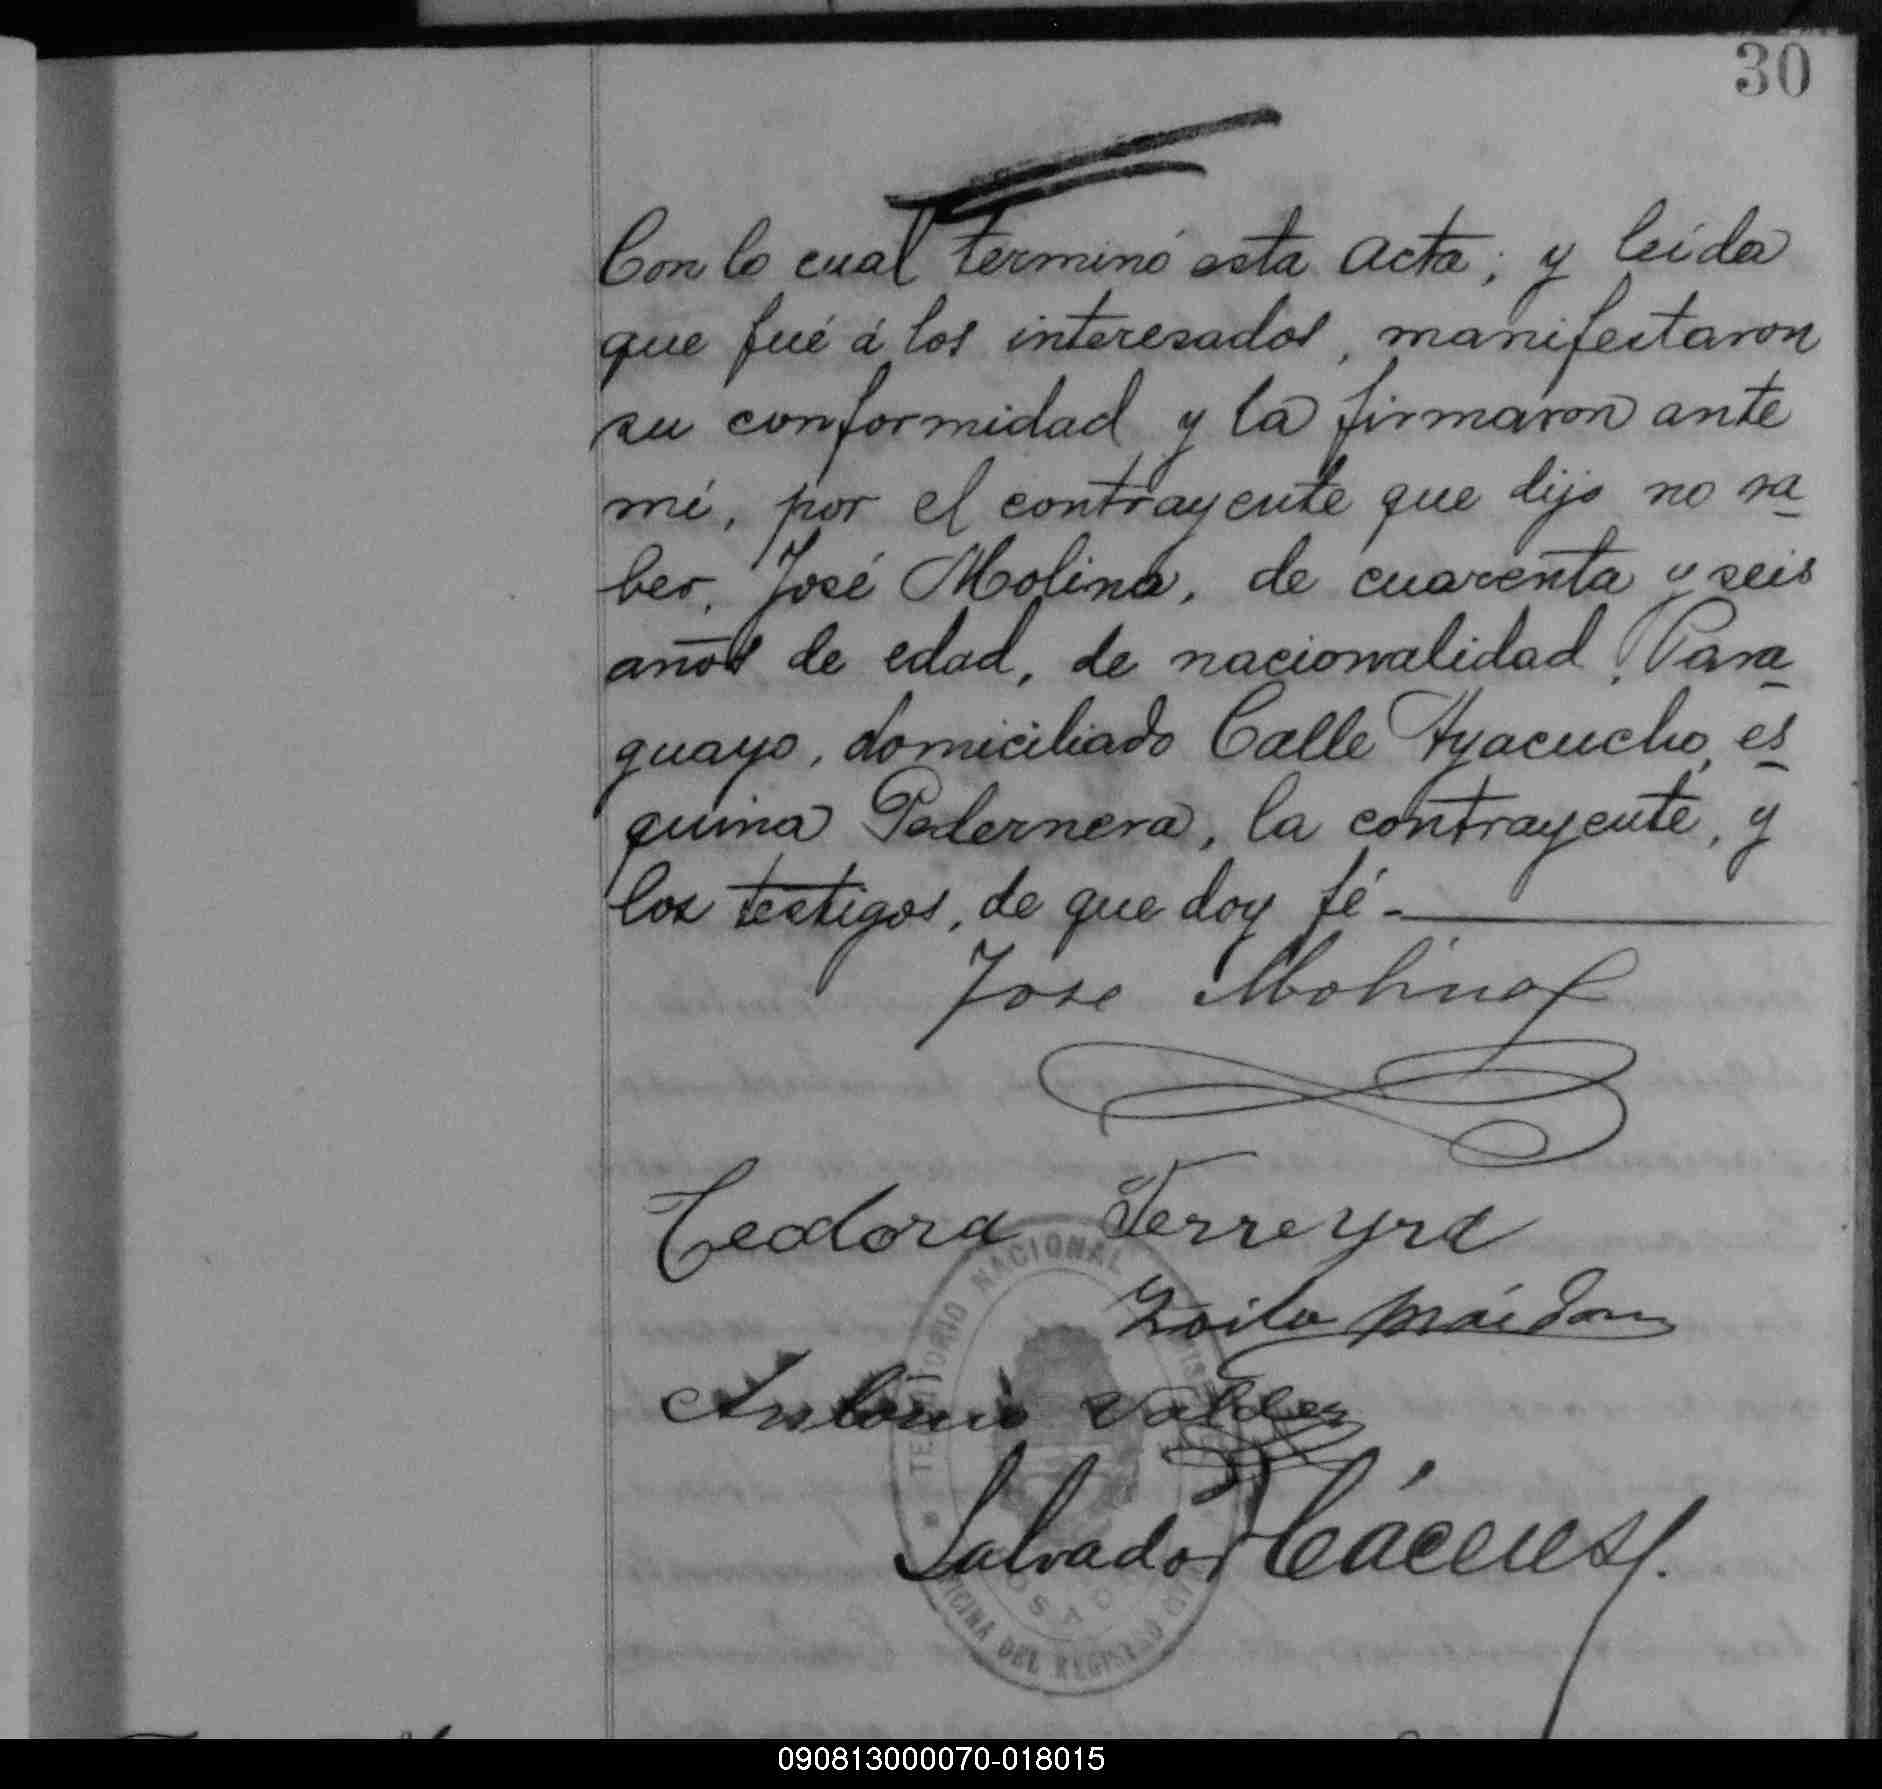 30
Con lo cual terminó esta acta; y leida
que fué á los interesados, manifestaron
su conformidad y la firmaron ante
mí, por el contrayente que dijo no sa-
ber, José Molina, de cuarenta y seis
años de edad, de nacionalidad, Para-
guayo, domiciliado Calle Ayacucho, es-
quina Pedernera, la contrayente, y
los testigos, de que doy fé.-
Jose Molina
Teodora Ferreyra
Zoilo
Antonio Valdez
Salvador Cáceres
TERRITORIO NACIONAL
OFICINA DEL REGISTRO CIVIL
POSADAS
090813000070-018015